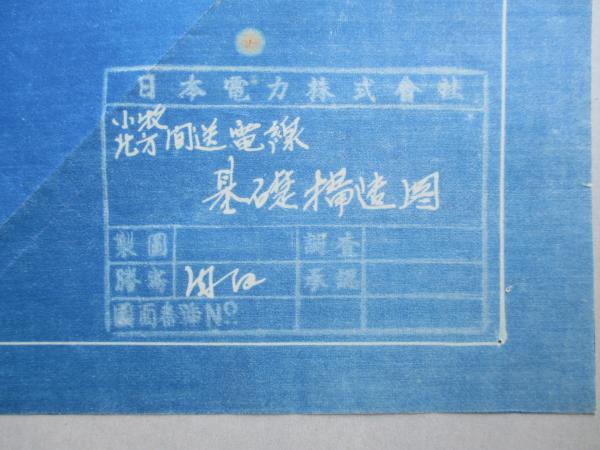 日本電力株式會社
小牧
枚方間送電線
基礎構造図
製圖 調査
謄寫 承認
圖面番號No.